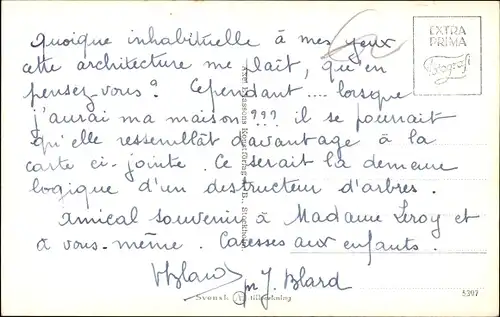 Quoique inhabituelle à mes yeux
cette architecture me plaît, qu'en
pensez-vous? Cependant .... lorsque
j'aurai ma maison??? il se pourrait
qu'elle ressemblât davantage à la
carte ci-jointe. Ce serait la demeure
logique d'un destructeur d'arbres.
Amical souvenir à Madame Leroy et
à vous-même. Caresses aux enfants.
J. Blard
EXTRA
PRIMA
Fotografi
Axel Eliassons Konstförlag A.B., Stockholm
Svensk tillverkning
5397